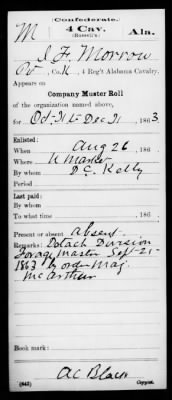 Confederate.
M 4 Cav. Ala.
(Russell's.)
J F. Morrow
Pvt, Co. K, 4 Reg't Alabama Cavalry.
Appears on
Company Muster Roll
of the organization named above,
for Oct 31 to Dec 31, 1863
Enlisted:
When Aug 26, 186 .
Where
By whom D.C. Kelly
Period
Last paid:
By whom
To what time , 186 .
Present or absent absent
Remarks: Detach Division
Forage Master Sept 21-
1863 by order Maj.
McArthur
Book mark:
(642) A C Black
Copyist.